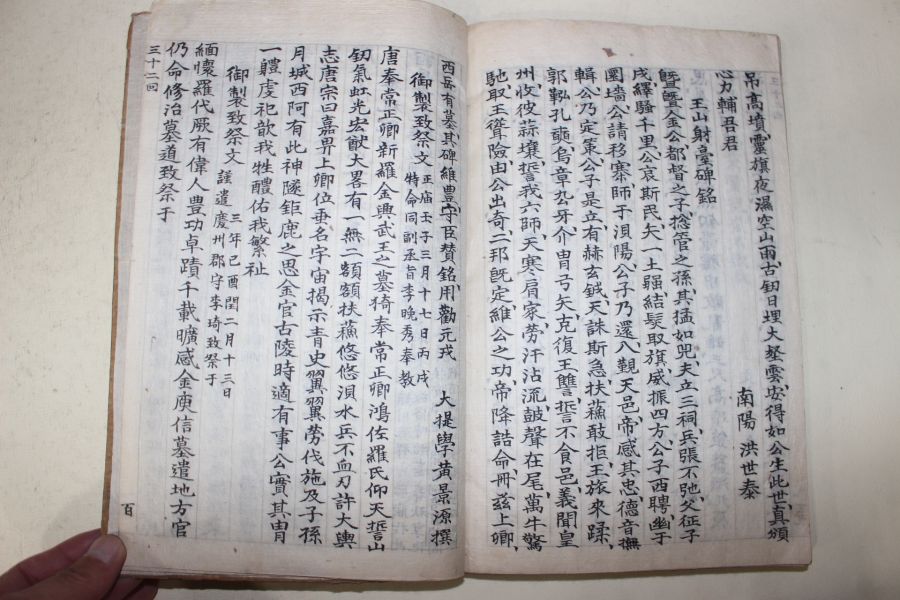 吊高墳靈旗夜濕空山雨古釰日埋大壑雲安得如公生此世真頒
心力輔吾君
南陽 洪世泰
王山射臺碑銘
曁曁金公都督之子捴管之孫其猛如兕夫立三祠兵張不弛父征子
戌繹騷千里公哀斯民矢一土彊結髮取旗威振四方公子西聘幽于
圜墻公請移寨師于浿陽公子乃還八觀天邑帝感其忠德音撫
輯公乃定策公子是立有赫玄鉞天誅斯急扶蘓敢拒王旅來蹂
郭靱孔蝡烏章公牙介冑弓矢克復王讐誓不食邑義聞皇
州收彼蒜壤誓我六師天寒肩家勞汗沾流鼓聲在尾萬牛驚
馳取王聳險由公出奇二邦旣定維公之功帝降誥命冊玆上卿
西岳有墓其碑維豊守臣賛銘用勸元戎 大提學黃景源撰
御製致祭文 正庙壬子三月十七日丙戌 特命同副丞旨李晚秀奉教
唐奉常正卿新羅金興武王之墓猗奉常正卿鴻佐羅氏仰天誓山
釰氣虹光宏猷大畧有一無二額額扶蘓悠悠浿水兵不血刃許大輿
志唐宗曰嘉畀上卿位垂名宇宙揭示青史翼翼勞伐施及子孫
月城西阿有此神隧鉅鹿之思金官古陵時適有事公實其冑
一軆虔祀歆我牲醴佑我繁祉
御製致祭文 三年己酉閏二月十三日 謹遣慶州郡守李琦致祭于
緬懷羅代厥有偉人豊功卓蹟千載曠感金庾信墓遣地方官
仍命修治墓道致祭于
三十二回
百